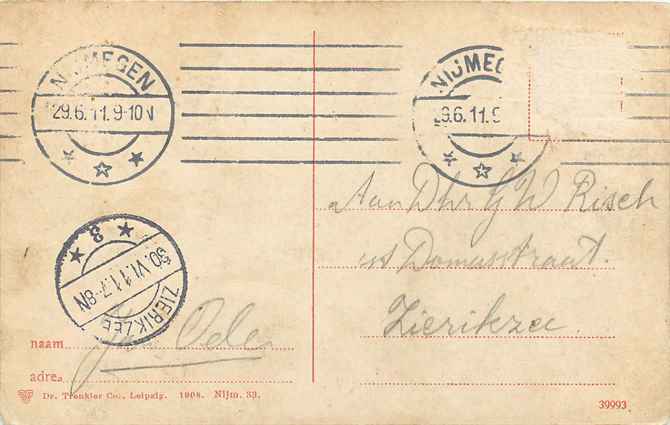 NIJMEGEN
29.6.11.9-10N
NIJMEG
9.6.11.9
Aan Dhr G W Risch
Domusstraat.
Zierikzee.
8
30.VI.11.7-8N
ZIERIKZEE
naam
Ode
adres
Dr. Trenkler Co., Leipzig. 1908. Nijm. 33.
39993